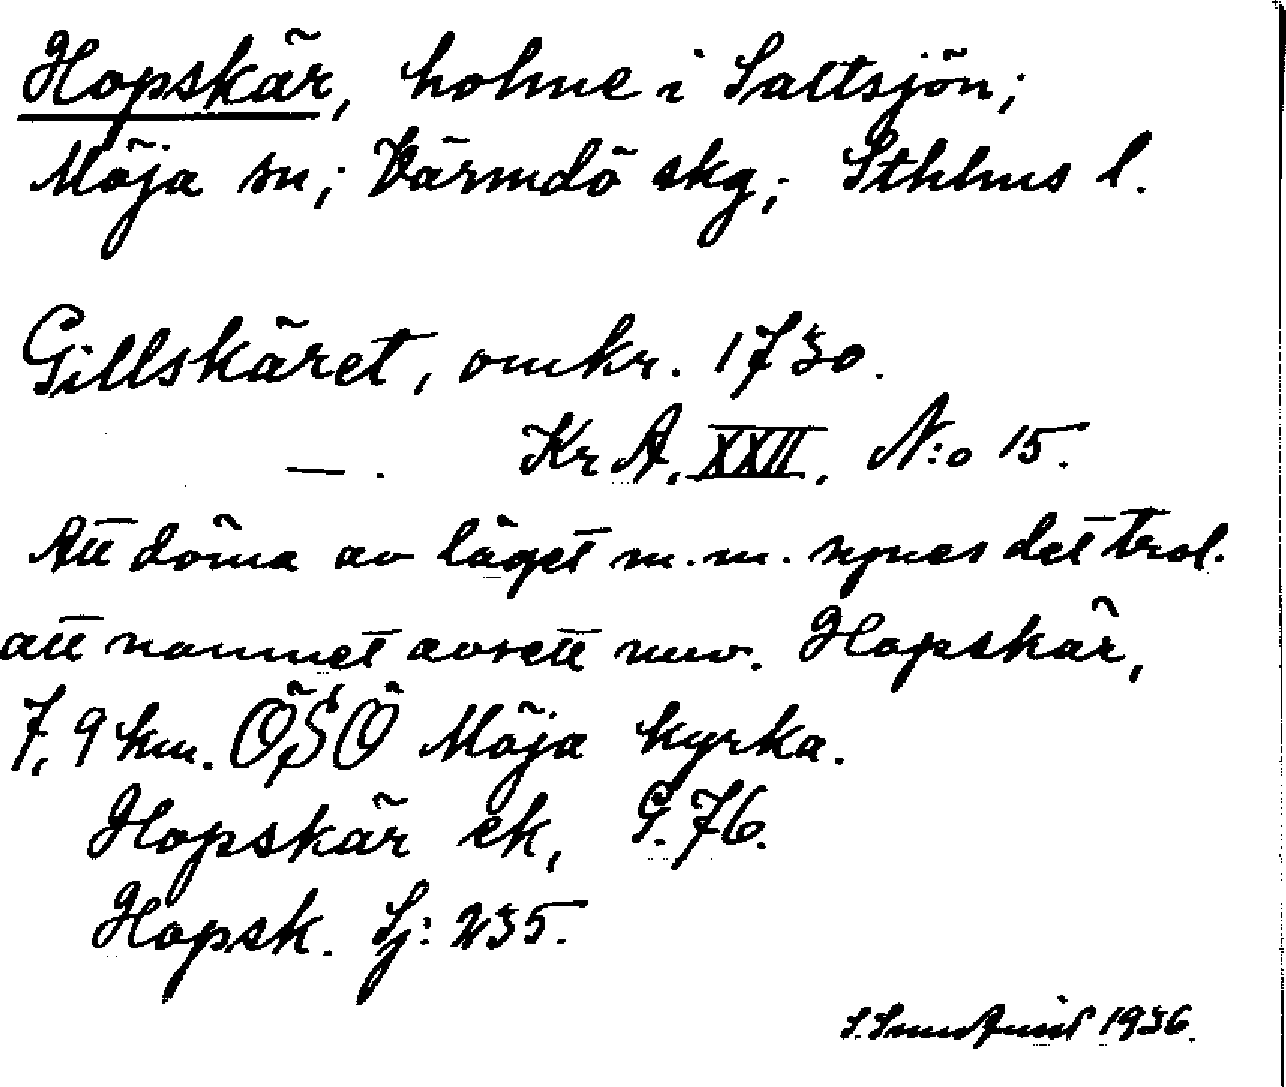 Hopskär, holme i Saltsjön;
Möja sn; Värmdö skg; Sthlms l.
Gillskäret, omkr. 1730.
— . Kr A. XXII. N:o 15.
Att döma av läget m.m. synes det trol.
att namnet avsett nuv. Hopskär,
7,9 km. ÖSÖ Möja kyrka.
Hopskär ek, G.76.
Hopsk. Sj: 235.
1936.